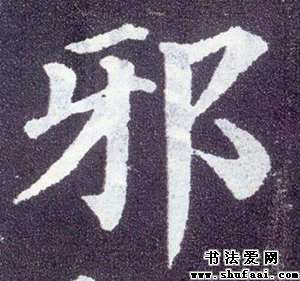 邪
书法爱网
www.shufaai.com